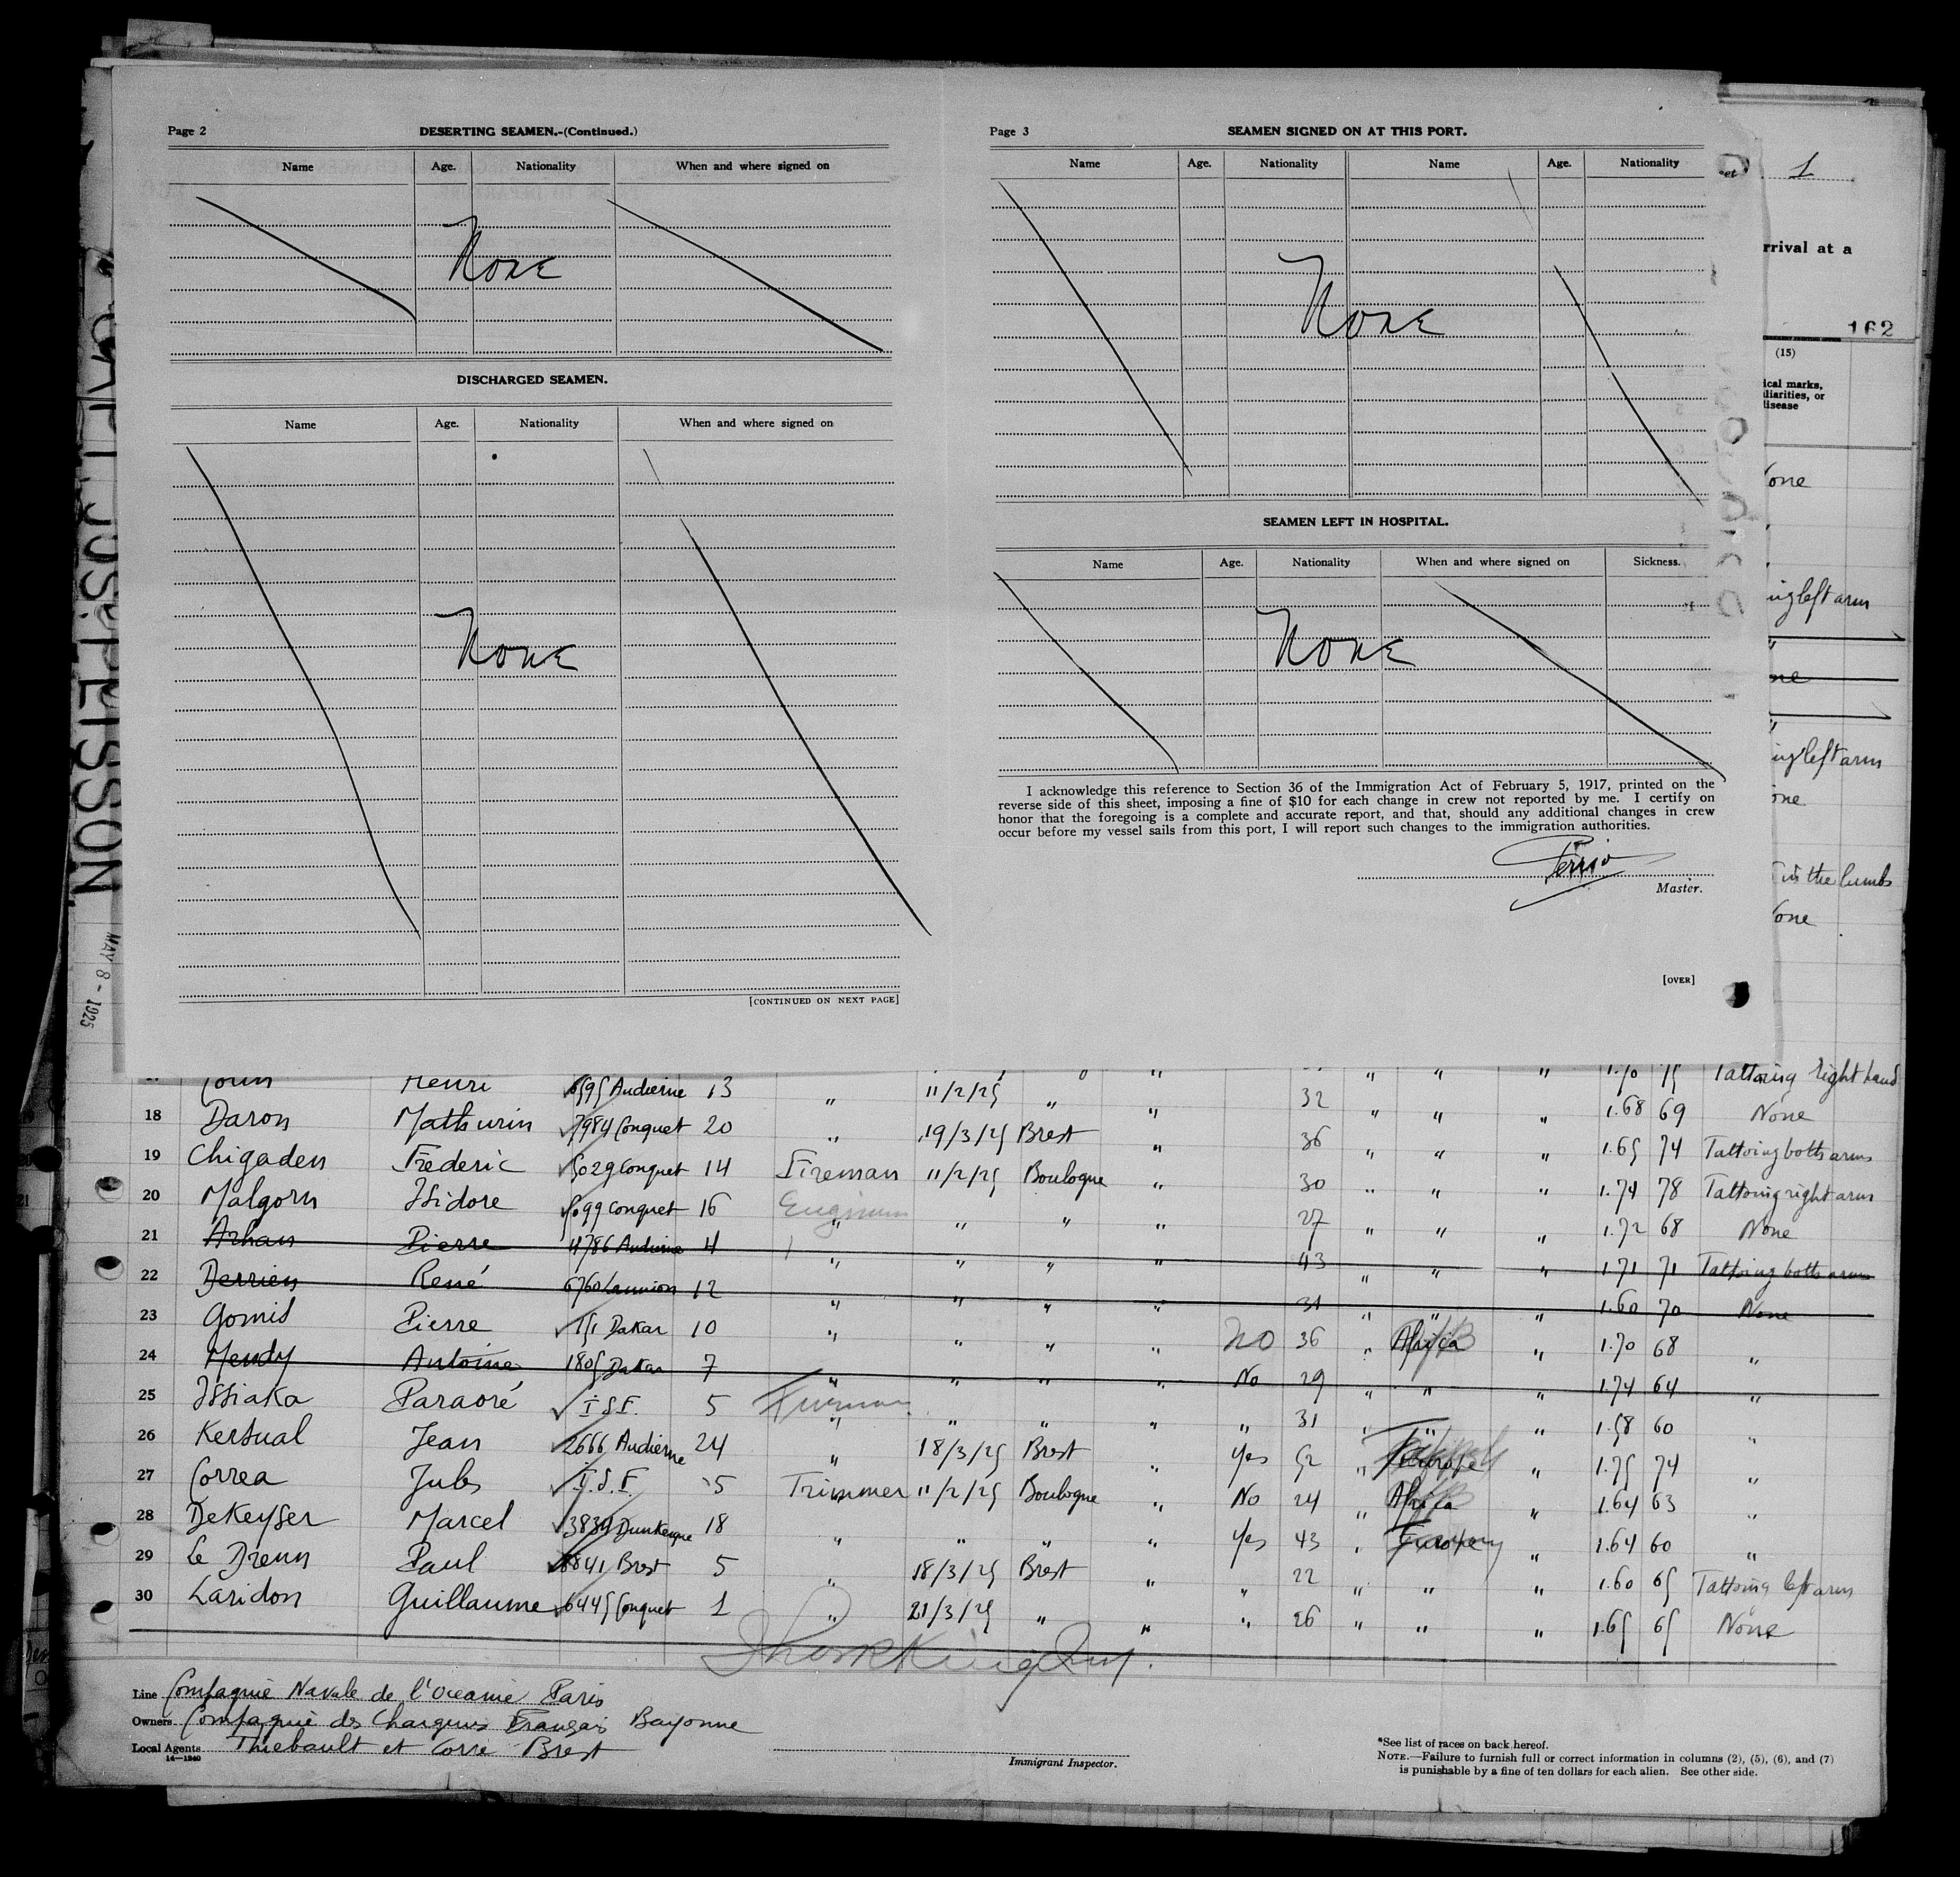 Page 2 DESERTING SEAMEN.-(Continued.)
Name Age. Nationality When and where signed on
None
DISCHARGED SEAMEN.
Name Age. Nationality When and where signed on
None
[CONTINUED ON NEXT PAGE]
Page 3 SEAMEN SIGNED ON AT THIS PORT.
Name Age. Nationality Name Age. Nationality
None
SEAMEN LEFT IN HOSPITAL.
Name Age. Nationality When and where signed on Sickness.
None
I acknowledge this reference to Section 36 of the Immigration Act of February 5, 1917, printed on the
reverse side of this sheet, imposing a fine of $10 for each change in crew not reported by me. I certify on
honor that the foregoing is a complete and accurate report, and that, should any additional changes in crew
occur before my vessel sails from this port, I will report such changes to the immigration authorities.
Master.
[OVER]
1
rrival at a
162
(15)
ical marks,
liarities, or
disease
one
ing left arm
"
ne
"
ing left arm
one
in the lumbs
one
MAY 8 - 1925
Henri 6595 Audierne 13 " 11/2/25 " " 32 " " " 1.70 75 Tattoing right hand
18 Daron Mathurin 7984 Conquet 20 " 19/3/25 Brest " 36 " " " 1.68 69 None
19 Chigaden Frederic 5029 Conquet 14 Fireman 11/2/25 Boulogne " 30 " " " 1.65 74 Tattoing both arms
20 Malgorn Isidore 5099 Conquet 16 " " " " 27 " " " 1.74 78 Tattoing right arm
21 Arhan Pierre 4786 Audierne 4 " " " " 43 " " " 1.72 68 None
22 Derrien René 6760 Lannion 12 " " " " 31 " " " 1.71 71 Tattoing both arms
23 Gomis Pierre 151 Dakar 10 " " " " No 36 " Africa " 1.60 70 None
24 Mendy Antoine 1805 Dakar 7 " " " " No 29 " " " 1.70 68 "
25 Issiaka Paraoré I.S.F. 5 Fireman " " " " 31 " " " 1.74 64 "
26 Kersual Jean 2666 Audierne 24 " 18/3/25 Brest " Yes 52 " Europe " 1.58 60 "
27 Correa Jules I.S.F. 5 Trimmer 11/2/25 Boulogne " No 24 " Africa " 1.75 74 "
28 DeKeyser Marcel 3839 Dunkerque 18 " " " " Yes 43 " " 1.64 63 "
29 Le Drenn Paul 8841 Brest 5 " 18/3/25 Brest " " 22 " " " 1.64 60 "
30 Laridon Guillaume 6445 Conquet 1 " 21/3/25 " " " 26 " " " 1.60 65 Tattoing left arm
1.65 65 None
Line Compagnie Navale de l'Oceanie Paris
Owners Compagnie des Chargeurs Français Bayonne
Local Agents Thiebault et Corre Brest
14—1240
Immigrant Inspector.
*See list of races on back hereof.
NOTE.—Failure to furnish full or correct information in columns (2), (5), (6), and (7)
is punishable by a fine of ten dollars for each alien. See other side.